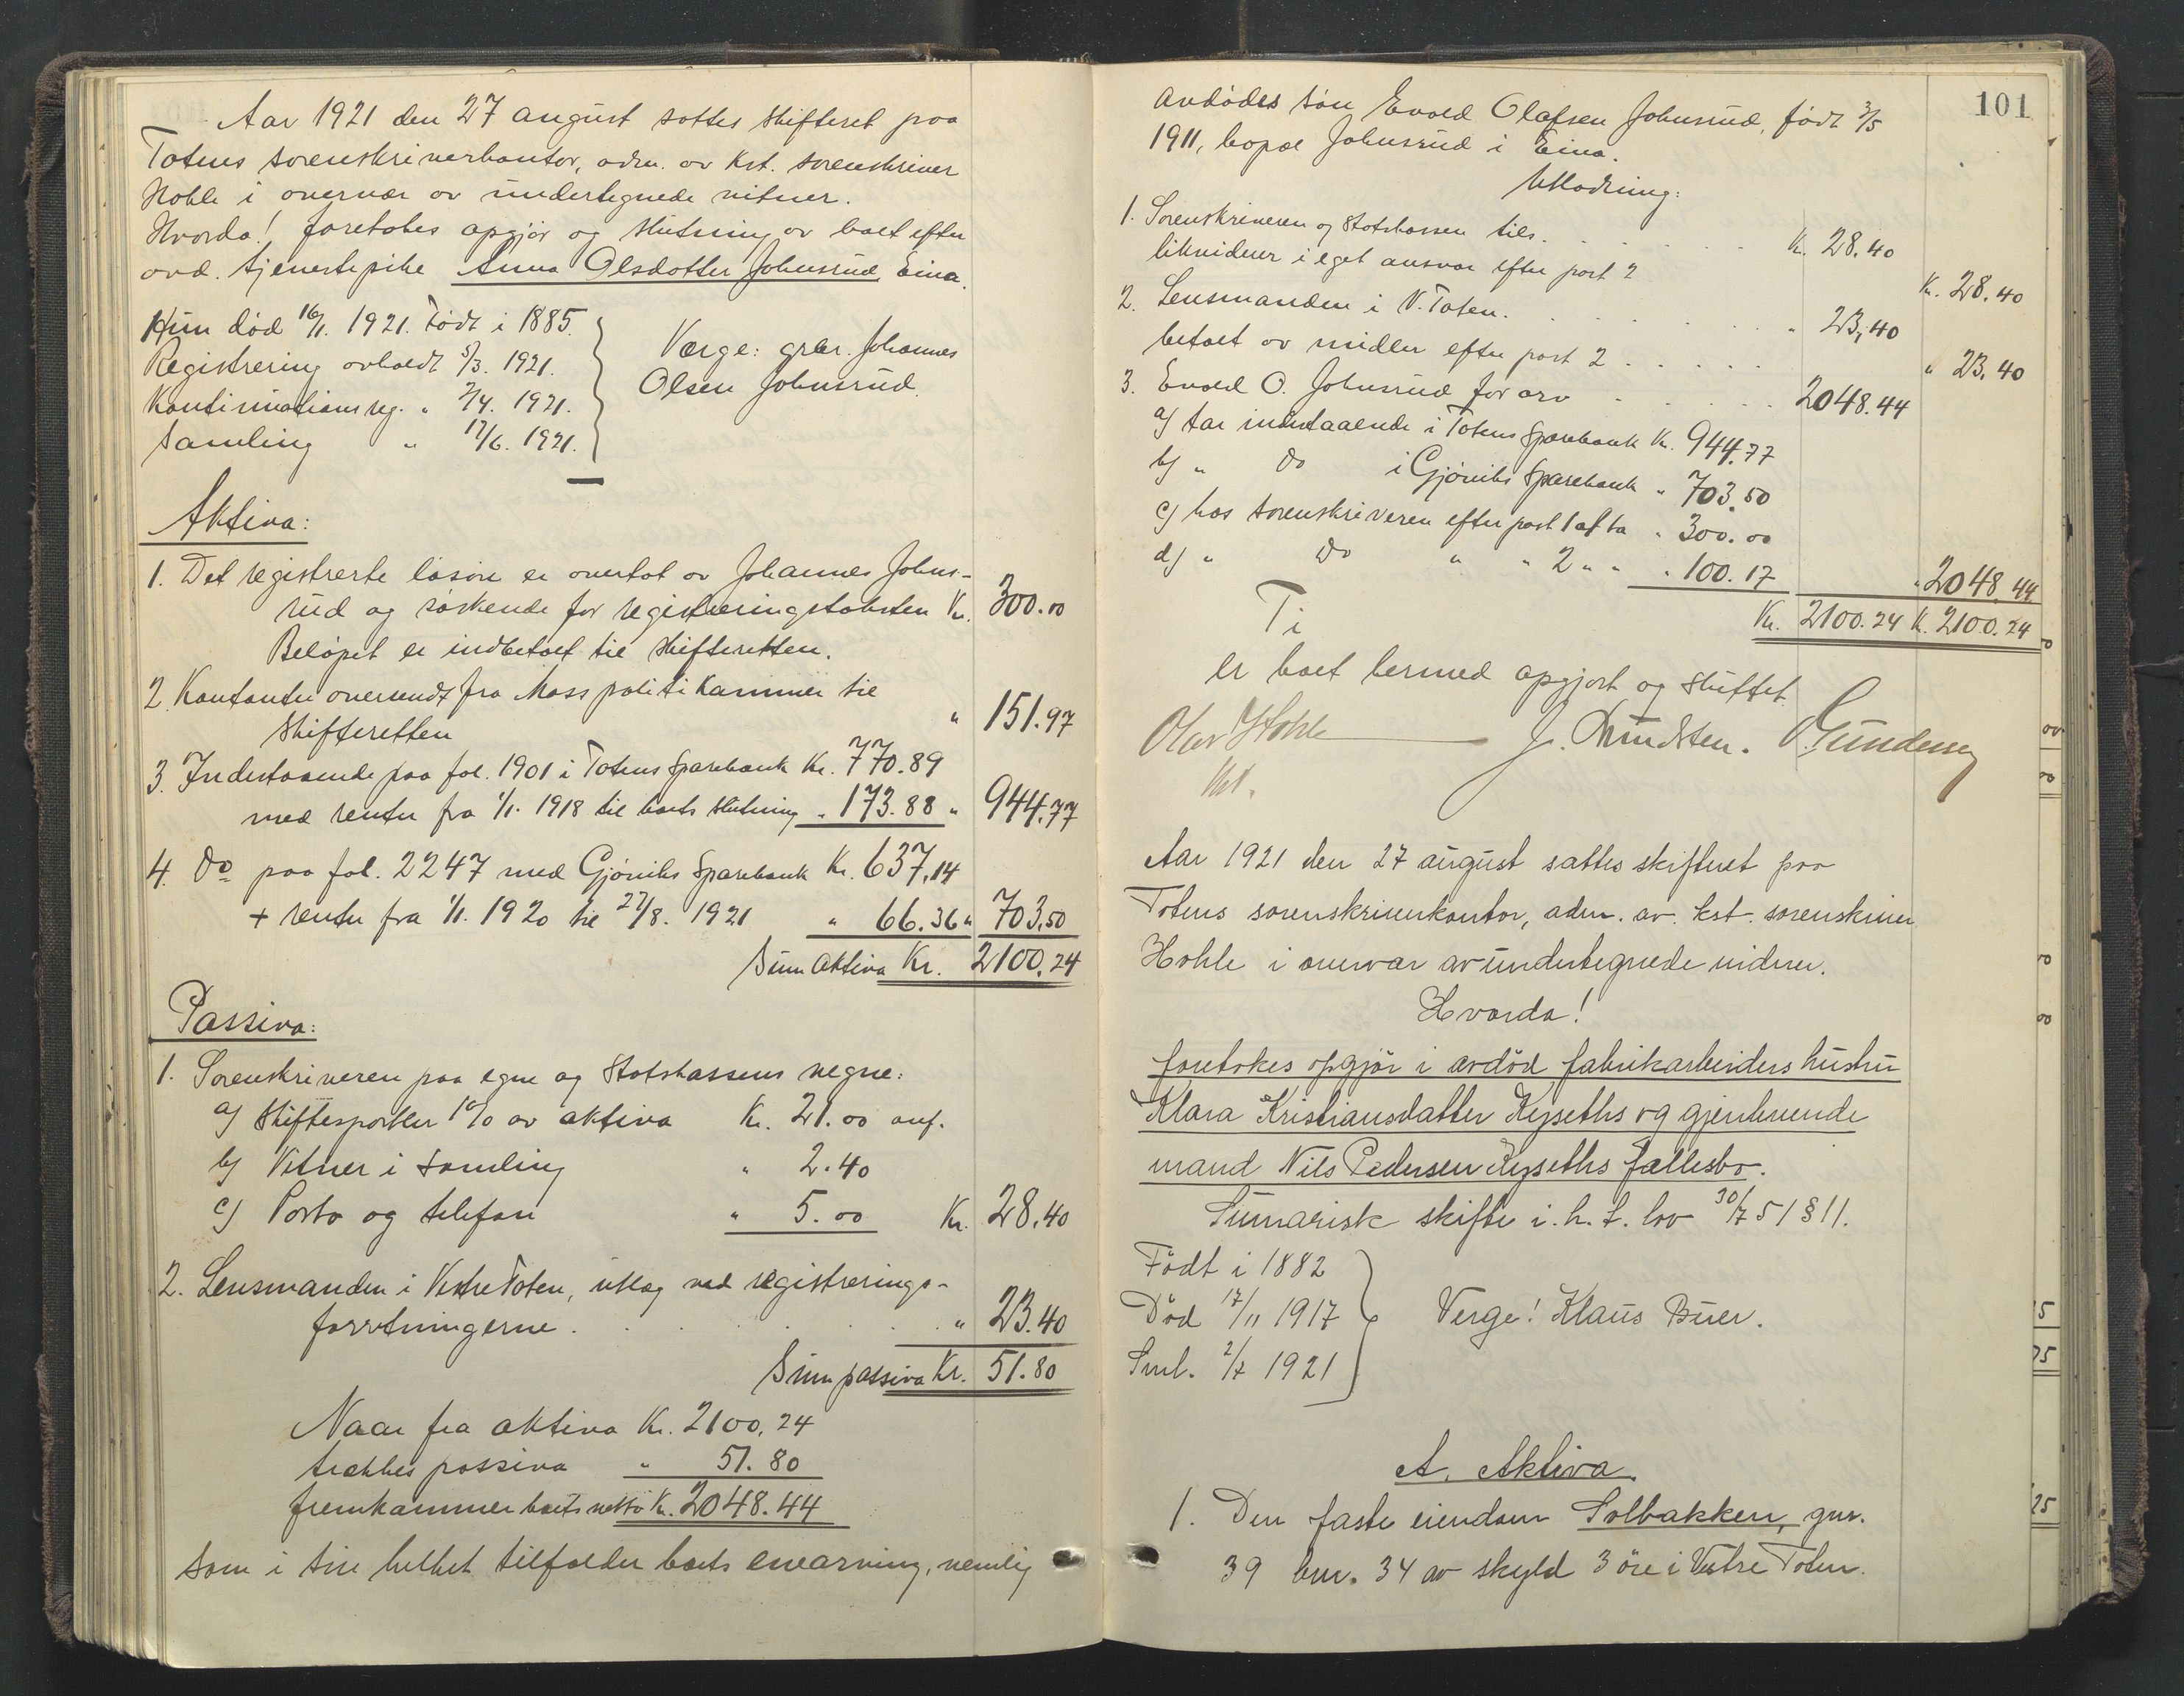 Aar 1921 den 27 august sattes skifteret paa
Totens sorenskriverkontor, adm. av kst. sorenskriver
Hohle i overvær av undertegnede vitner.
Hvorda! foretokes opgjör og slutning av boet efter
avd. tjenestepike Anna Olsdotter Johnsrud, Eina.
Hun död 16/1. 1921. Födt i 1885.
Registrering avholdt 5/3. 1921.
Kontinuationsreg. " 2/4. 1921.
Samling " 17/6. 1921.
Verge: grbr. Johannes
Olsen Johnsrud.
Aktiva:
1. Det registrerte lösöre er overtat av Johannes Johns-
rud og söskende for registreringstaksten Kr. 300.00
Belöpet er indbetalt til skifteretten.
2. Kontanter oversendt fra Moss politikammer til
skifteretten " 151.97
3. Indestaaende paa fol. 1901 i Totens Sparebank Kr. 770.89
med renter fra 1/1. 1918 til boets slutning " 173.88 " 944,77
4. Do paa fol. 2247 med Gjöviks Sparebank Kr. 637,14
+ renter fra 1/1. 1920 til 27/8. 1921 " 66.36 " 703,50
Sum aktiva Kr. 2100,24
Passiva:
1. Sorenskriveren paa egne og Statskassens vegne:
a) Skiftesportler 1% av aktiva Kr. 21.00
b) Vitner i samling " 2.40
c) Porto og telefon " 5.00 Kr. 28,40
2. Lensmanden i Vestre Toten, utlæg ved registrerings-
forretningerne . . . . . " 23.40
Sum passiva Kr. 51.80
Naar fra aktiva Kr. 2100,24
trækkes passiva " 51.80
fremkommer boets netto Kr. 2048.44
som i sin helhet tilfalder boets enearving, nemlig
101
avdödes sön Evald Olafsen Johnsrud, födt 3/5
1911, bopæl Johnsrud i Eina.
Utlodning:
1. Sorenskriveren og Statskassen tils. . . . . . Kr. 28.40
likviderer i eget ansvar efter post 2 Kr. 28.40
2. Lensmanden i V. Toten. . . . . . " 23,40
betalt av midler efter post 2 . . . . . " 23,40
3. Evald O. Johnsrud for arv . . . . . 2048.44
a) tar indestaaende i Totens Sparebank Kr. 944.77
b) " Do i Gjöviks Sparebank " 703.50
c) hos sorenskriveren efter post 1 af ta " 300.00
d) " Do " " 2 " " " 100.17 " 2048.44
Kr. 2100.24 K. 2100.24
Ti
er boet hermed opgjort og sluttet.
Olav Hohle J. Knudsten. Gundersen
kst.
Aar 1921 den 27 august sattes skifteret paa
Totens sorenskriverkontor, adm. av. kst. sorenskriver
Hohle i overvær av undertegnede vidner.
Hvorda!
foretokes opgjör i avdöd fabrikarbeiders hustru
Klara Kristiansdatter Kyseths og gjenlevende
mand Nils Pedersen Kyseths fællesbo.
Sumarisk skifte i. h. t. lov 30/7 51 § 11.
Födt i 1882
Död 17/11 1917
Saml. 2/7 1921
Verge! Klaus Buer.
A. Aktiva.
1. Den faste eiendom Solbakken, gnr.
39 bnr. 34 av skyld 3 öre i Vestre Toten.